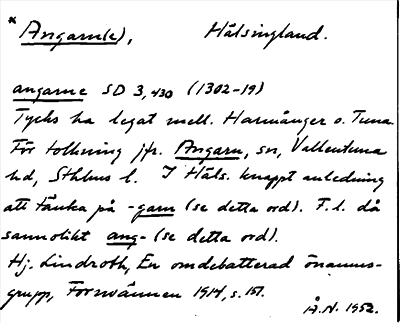 * Angarn(e), Hälsingland.
angarne SD 3, 430 (1302-19)
Tycks ha legat mell. Harmånger o. Tuna.
För tolkning jfr. Angarn, sn, Vallentuna
hd, Sthlms l. I Häls. knappt anledning
att tänka på -garn (se detta ord). F.l. då
sannolikt ang- (se detta ord).
Hj. Lindroth, En omdebatterad önamns-
grupp, Fornvännen 1914, s. 151.
Å.N. 1952.